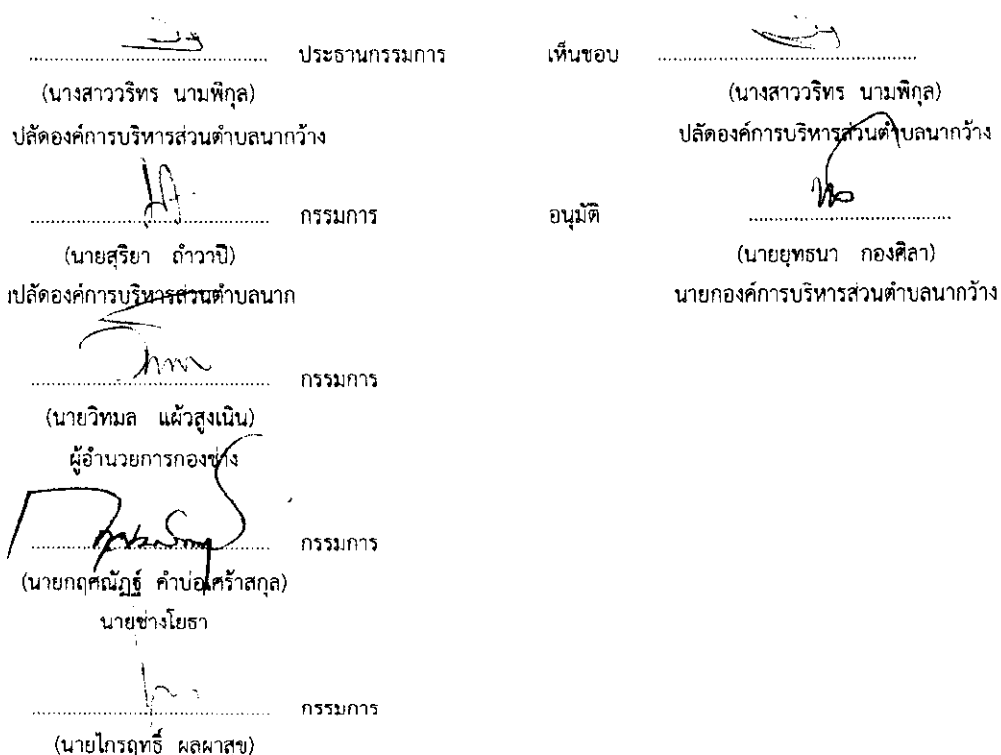 ประธานกรรมการ
(นางสาววริทร นามพิกุล)
ปลัดองค์การบริหารส่วนตำบลนากว้าง
กรรมการ
(นายสุริยา ถำวาปี)
ปลัดองค์การบริหารส่วนตำบลนาก
กรรมการ
(นายวิทมล แผ้วสูงเนิน)
ผู้อำนวยการกองช่าง
กรรมการ
(นายกฤศณัฏฐ์ คำบ่อเศร้าสกุล)
นายช่างโยธา
กรรมการ
(นายไกรฤทธิ์ ผลผาสุข)
เห็นชอบ
(นางสาววริทร นามพิกุล)
ปลัดองค์การบริหารส่วนตำบลนากว้าง
อนุมัติ
(นายยุทธนา กองศิลา)
นายกองค์การบริหารส่วนตำบลนากว้าง